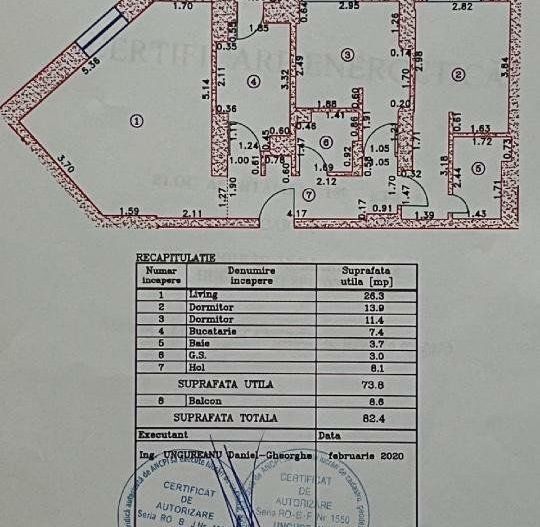 1.70
2.95
2.82
0.64
1.26
1.85
0.55
0.35
0.14
2.98
5.36
5.14
2.11
4
3.32
2.49
3
1.70
2
3.84
0.36
1.88
0.60
0.20
1
1.11
0.60
0.46
1.41
0.86
1.91
1.21
1.71
0.61
1.63
1.24
0.45
1.47
6
1.05
0.73
1.00
0.61
0.78
0.92
0.58
1.05
3.18
5
3.70
0.60
1.69
0.32
2.44
1.27
1.90
2.12
7
1.70
1.47
1.71
1.59
2.11
4.17
0.17
0.91
1.39
1.43
RECAPITULATIE
Numar incapere Denumire incapere Suprafata utila [mp]
1 Living 26.3
2 Dormitor 13.9
3 Dormitor 11.4
4 Bucatarie 7.4
5 Baie 3.7
6 G.S. 3.0
7 Hol 8.1
SUPRAFATA UTILA 73.8
8 Balcon 8.6
SUPRAFATA TOTALA 82.4
Executant Data
Ing. UNGUREANU Daniel-Gheorghe februarie 2020
CERTIFICAT
DE
AUTORIZARE
Seria RO-B-J Nr.
CERTIFICAT
DE
AUTORIZARE
Seria RO-B-F Nr 1550